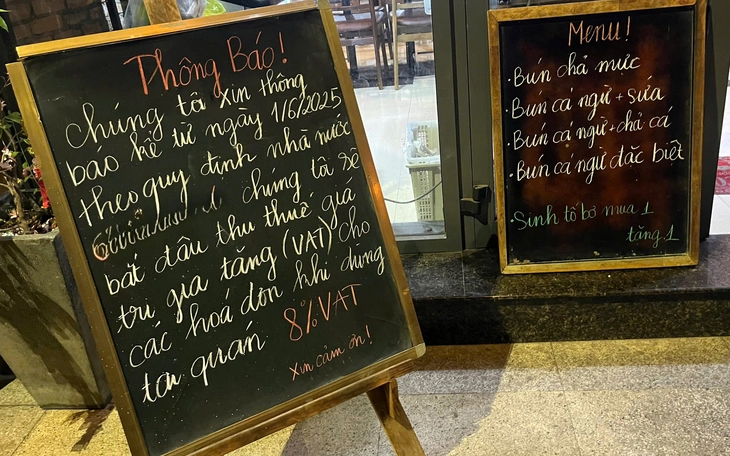 Thông Báo!
chúng tôi xin thông
báo kể từ ngày 1/6/2025
theo quy định nhà nước
chúng tôi sẽ
bắt đầu thu thuế gia
trị gia tăng (VAT) cho
các hoá đơn khi dùng
tại quán 8% VAT
Xin cảm ơn!
Menu!
·Bún chả mực
·Bún cá ngừ + sứa
·Bún cá ngừ + chả cá
·Bún cá ngừ đặc biệt
·Sinh tố bơ mua 1
tặng 1